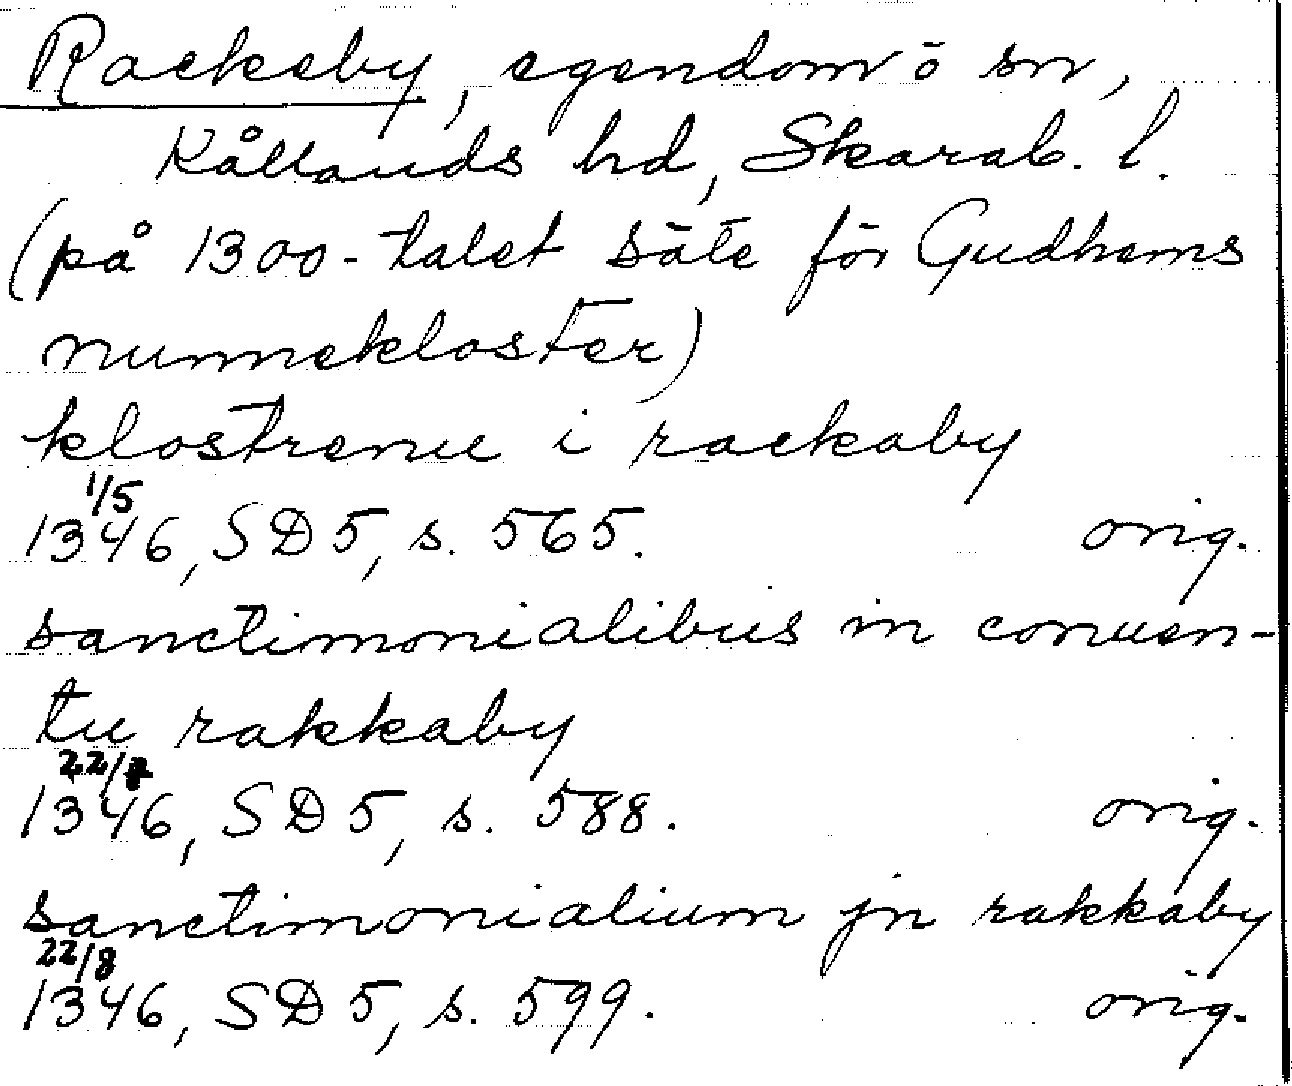 Rackeby, egendom ō sn,
Kållands hd, Skarab. l.
(på 1300-talet säte för Gudhems
nunnekloster)
klostrenu i rackaby
1/5
1346, SD 5, s. 565. orig.
sanctimonialibus in conuen-
tu rakkaby
22/7
1346, SD 5, s. 588. orig.
sanctimonialium jn rakkaby
22/8
1346, SD 5, s. 599. orig.